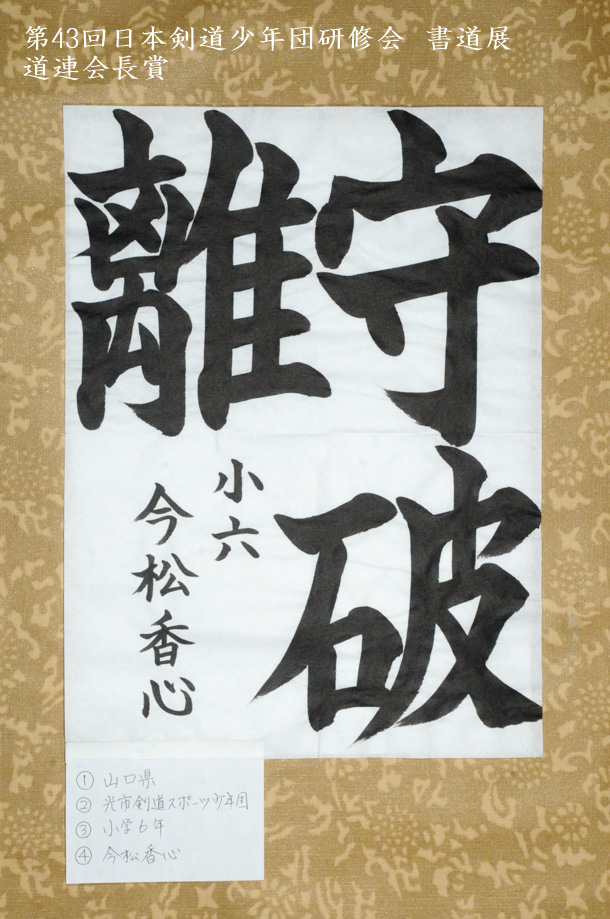 第43回日本剣道少年団研修会 書道展
道連会長賞
守破
離
小六
今松香心
① 山口県
② 光市剣道スポーツ少年団
③ 小学6年
④ 今松香心